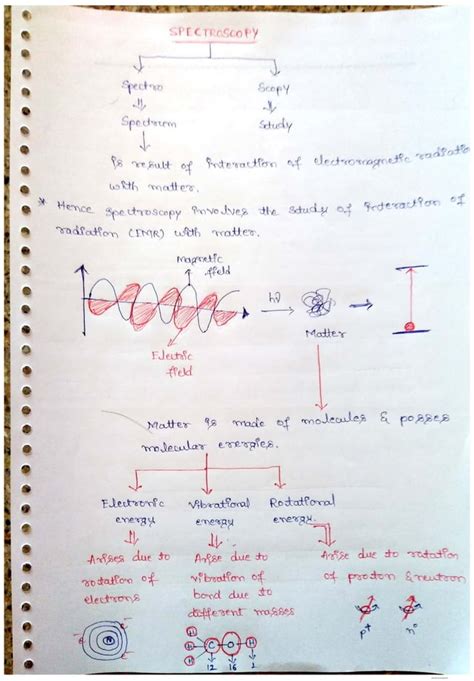 SPECTROSCOPY
Spectro Scopy
Spectrum Study
is result of interaction of electromagnetic radiatio
with matter.
* Hence spectroscopy involves the study of interaction of
radiation (EMR) with matter.
Magnetic
field
hν
Matter
Electric
field
Matter is made of molecules & posses
molecular energies.
Electronic Vibrational Rotational
energy energy energy.
Arises due to Arise due to Arise due to rotation
rotation of vibration of of proton & neutron
electrons bond due to
different masses
p+ n°
N
e e e
H
H C O H
H
12 16 1